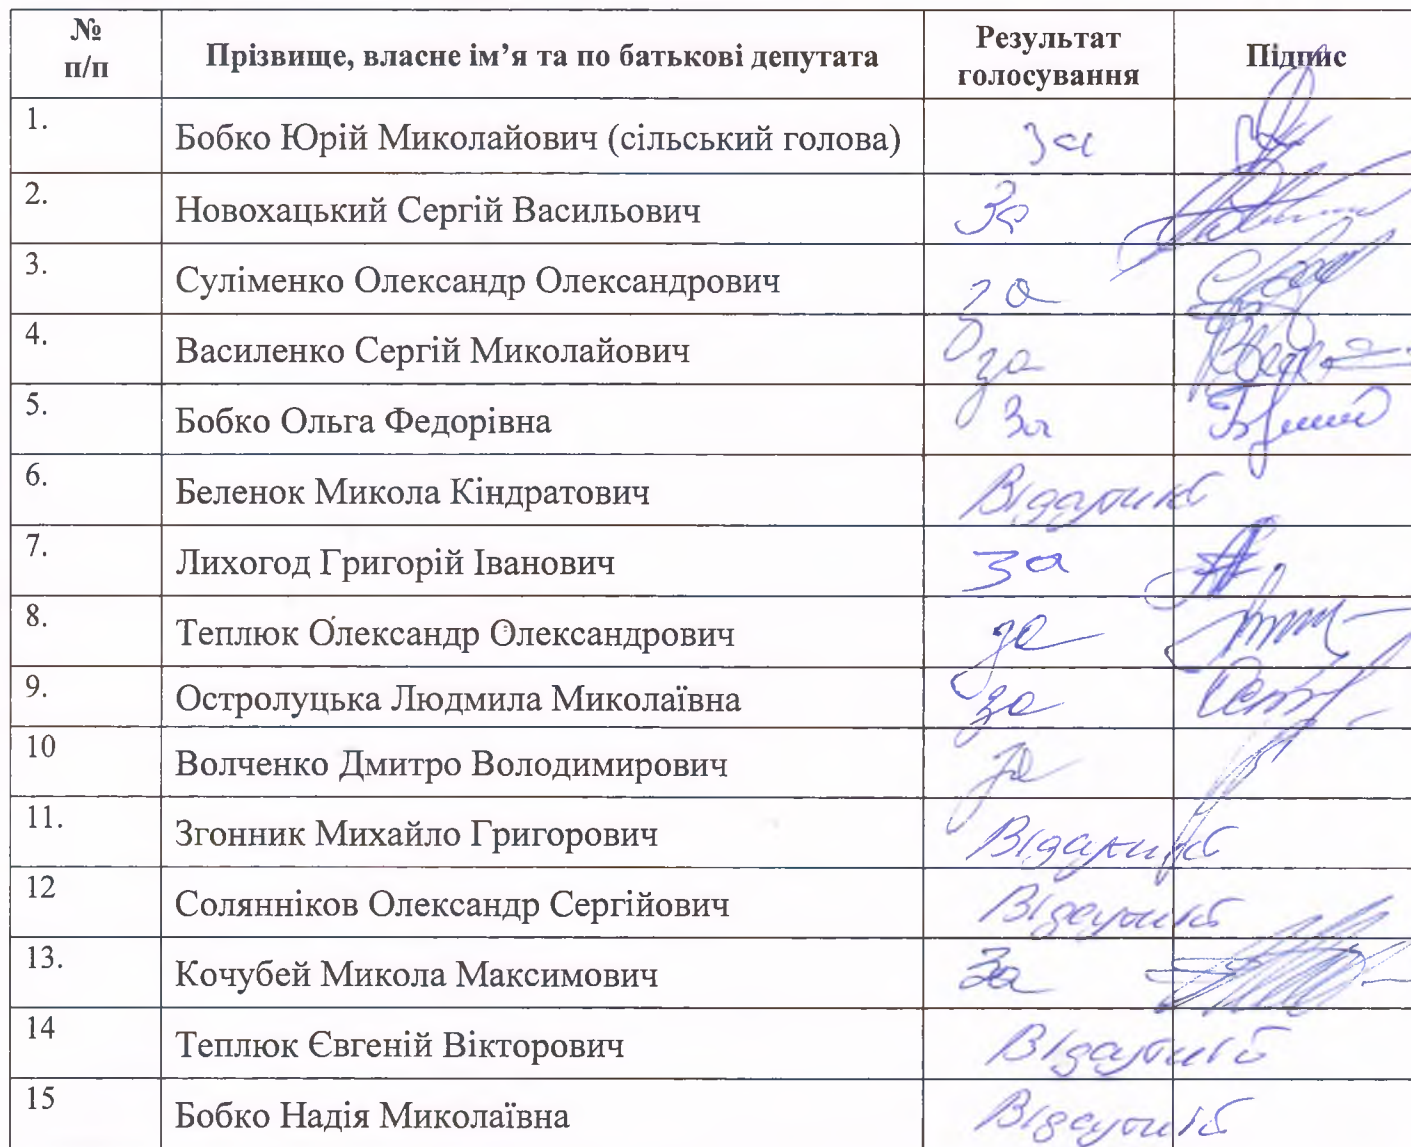 № п/п Прізвище, власне ім’я та по батькові депутата Результат голосування Підпис
1. Бобко Юрій Миколайович (сільський голова) За
2. Новохацький Сергій Васильович За
3. Суліменко Олександр Олександрович за
4. Василенко Сергій Миколайович за
5. Бобко Ольга Федорівна За
6. Беленок Микола Кіндратович Відсутній
7. Лихогод Григорій Іванович За
8. Теплюк Олександр Олександрович за
9. Остролуцька Людмила Миколаївна за
10 Волченко Дмитро Володимирович за
11. Згонник Михайло Григорович Відсутній
12 Солянніков Олександр Сергійович Відсутній
13. Кочубей Микола Максимович За
14 Теплюк Євгеній Вікторович Відсутній
15 Бобко Надія Миколаївна Відсутній